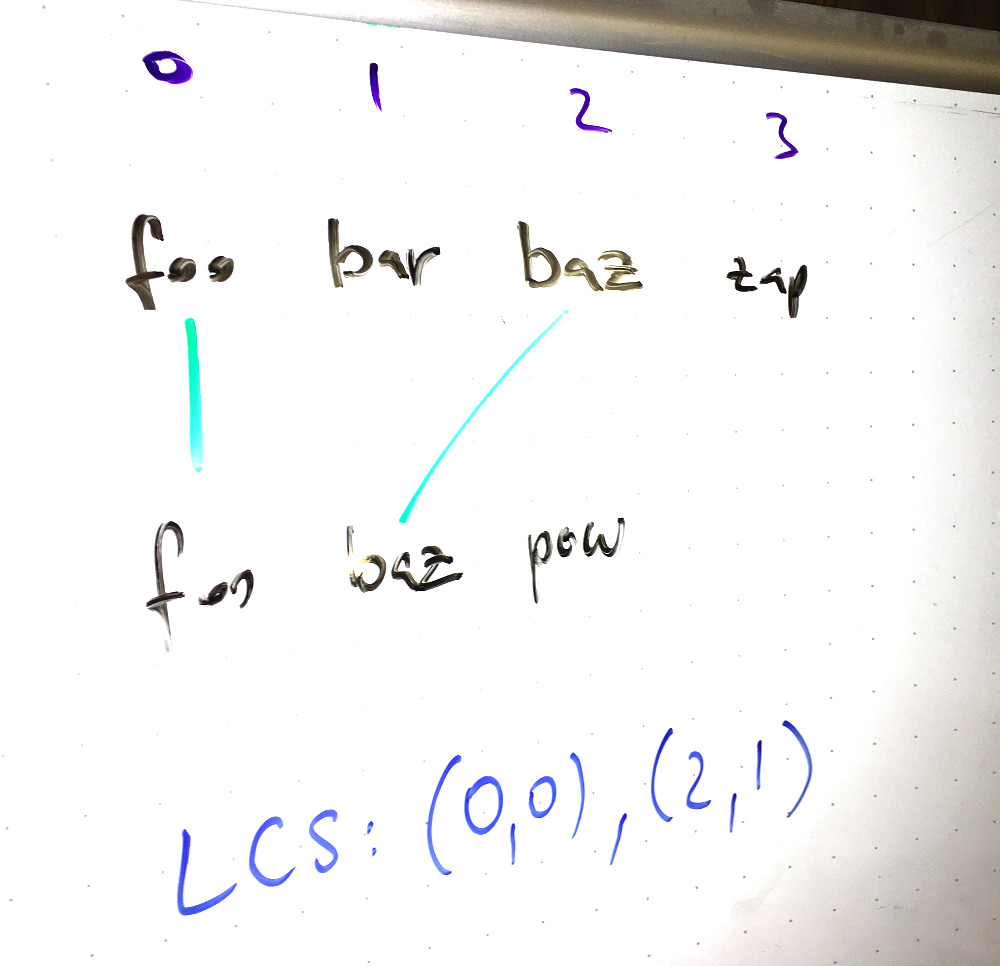 0 1 2 3
foo bar baz zap
foo baz pow
LCS: (0,0), (2,1)